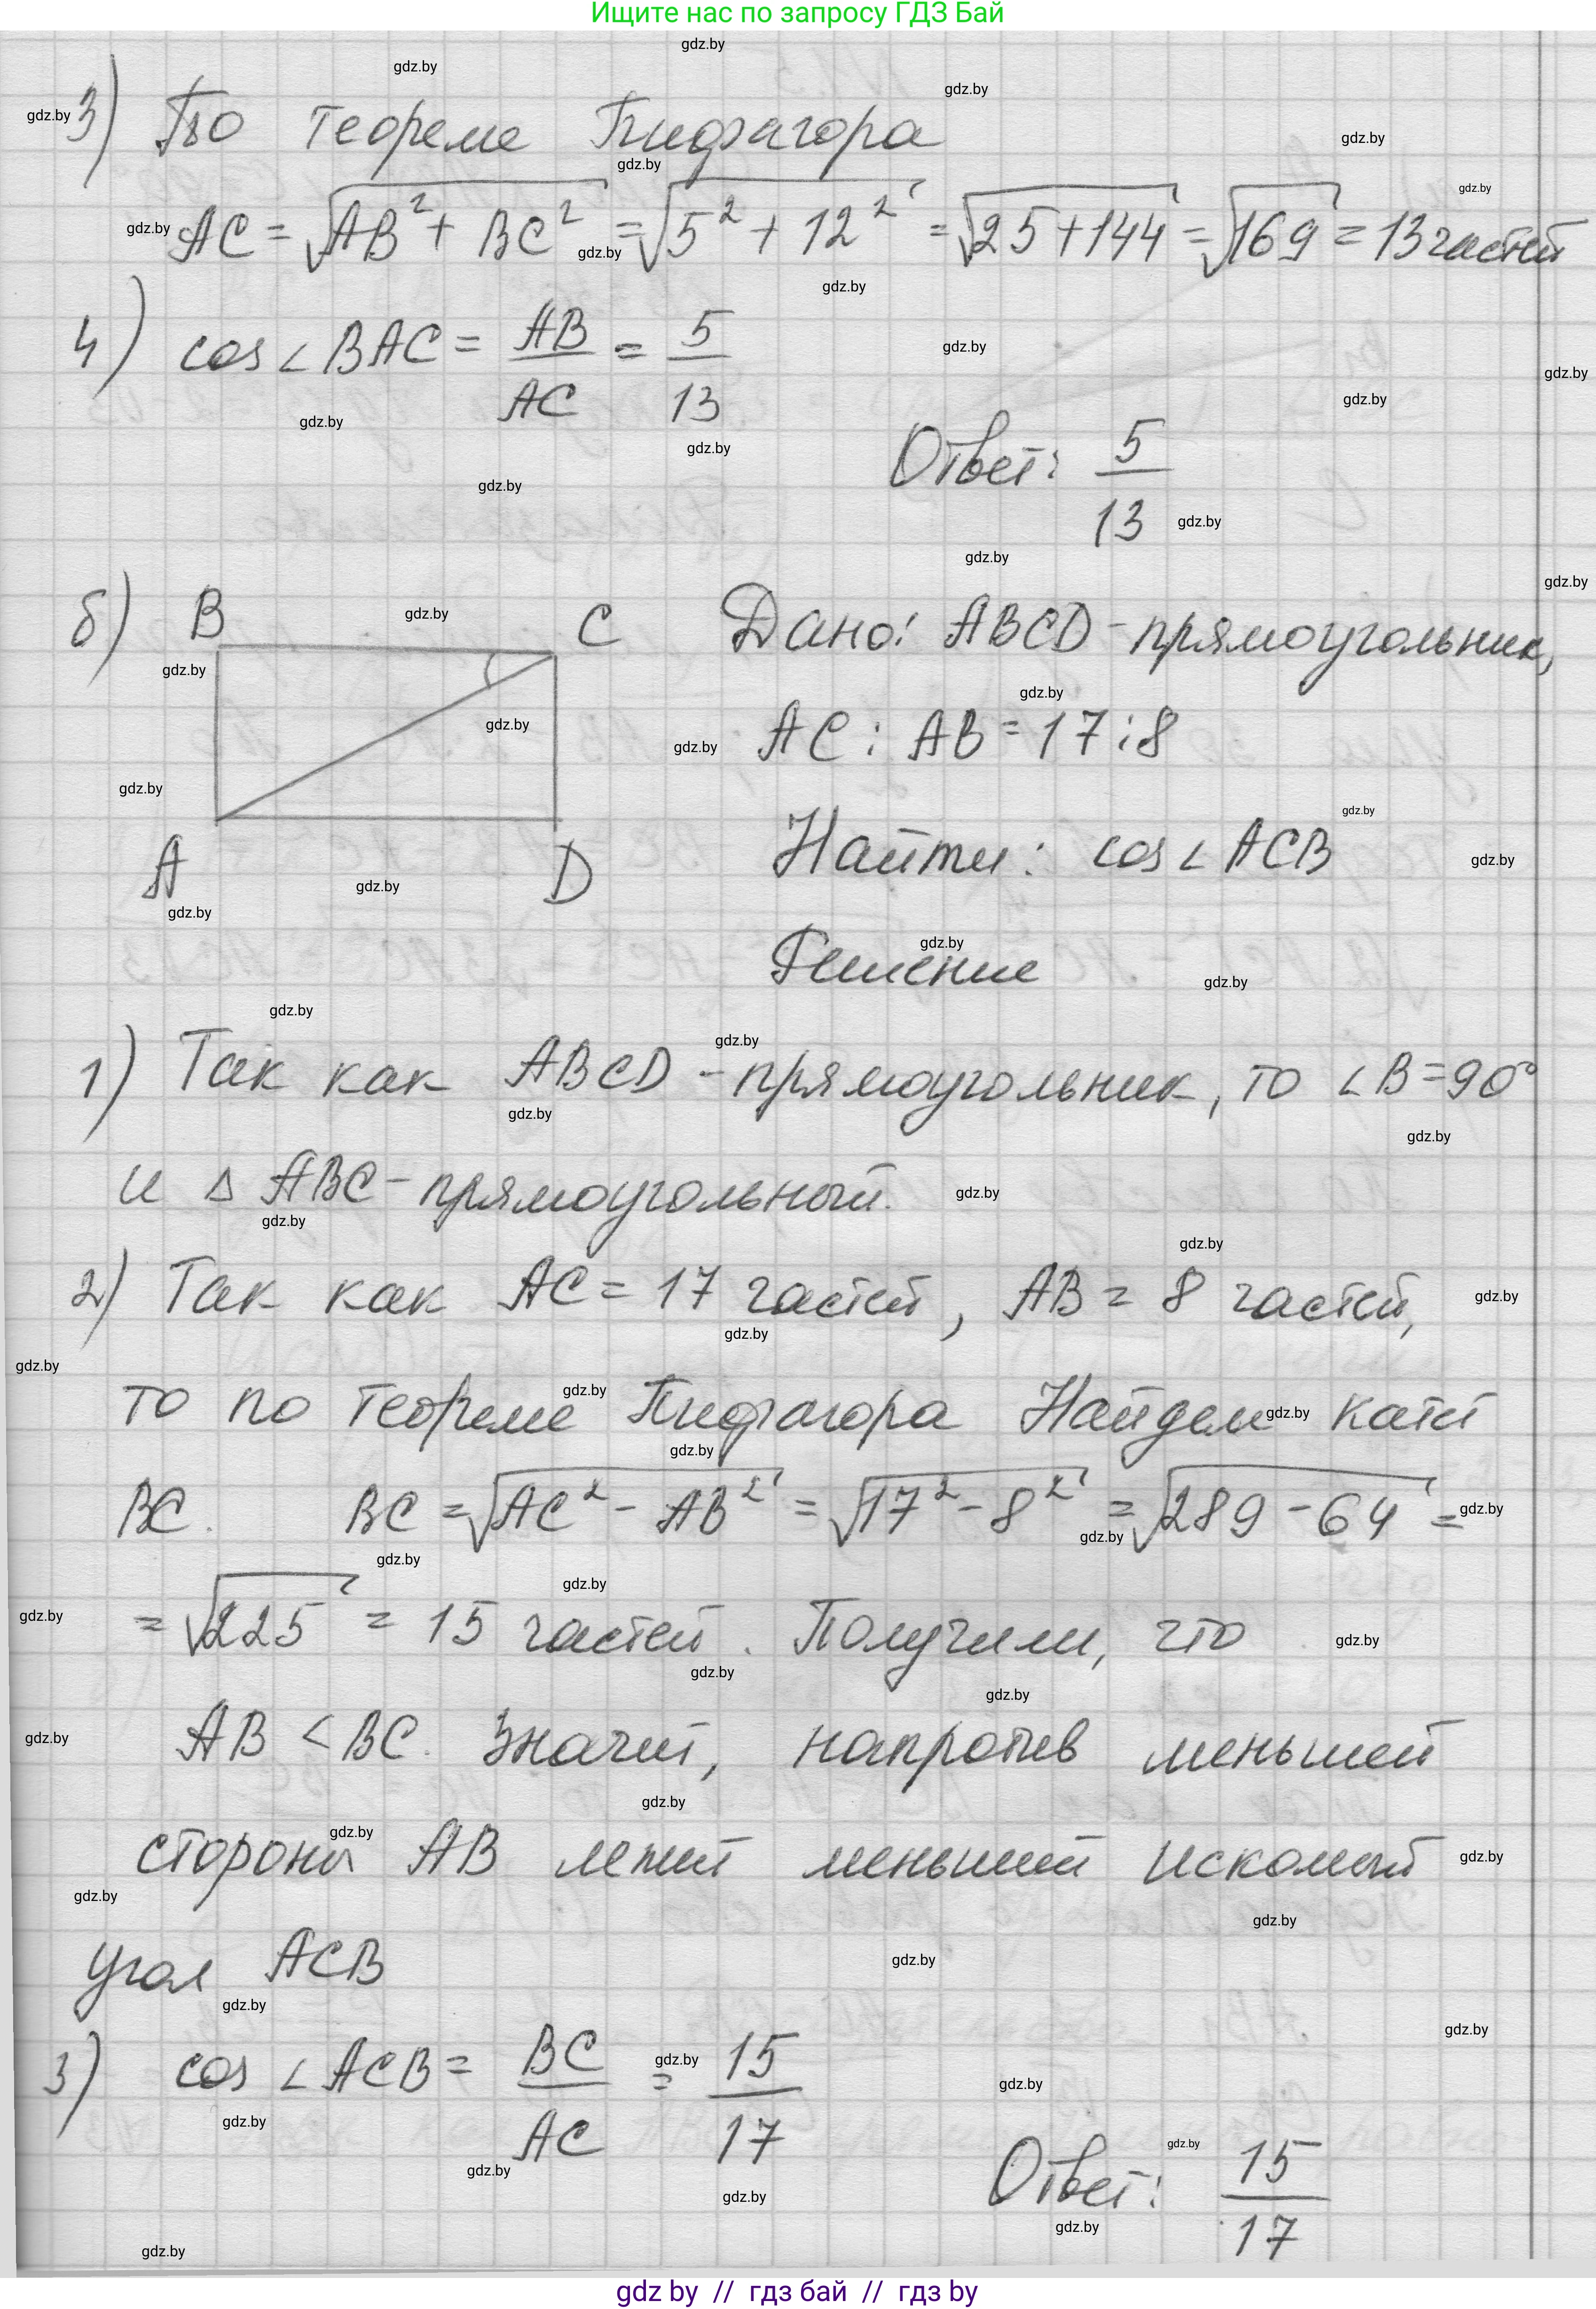 Ищите нас по запросу ГДЗ Бай
3) По теореме Пифагора
AC = √(AB² + BC²) = √(5² + 12²) = √(25+144) = √169 = 13 частей
4) cos∠BAC = AB/AC = 5/13
Ответ: 5/13
б) B C Дано: ABCD - прямоугольник,
AC : AB = 17 : 8
A D Найти: cos∠ACB
Решение
1) Так как ABCD - прямоугольник, то ∠B=90°
и △ ABC - прямоугольный.
2) Так как AC = 17 частей, AB = 8 частей,
то по теореме Пифагора Найдем катет
BC. BC = √(AC² - AB²) = √(17² - 8²) = √(289 - 64) =
= √225 = 15 частей. Получили, что
AB < BC. Значит, напротив меньшей
стороны AB лежит меньший искомый
угол ACB
3) cos∠ACB = BC/AC = 15/17
Ответ: 15/17
gdz by // гдз бай // гдз by